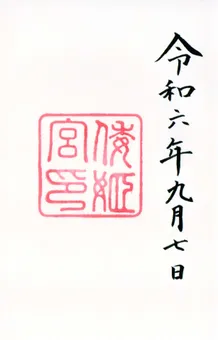 令和六年九月七日
倭姫宮印